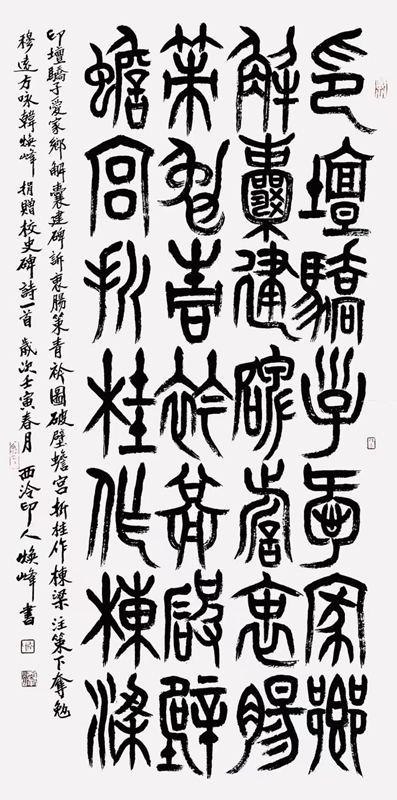 印壇驕子愛家鄉
解囊建碑訴衷腸
策勉青衿圖破壁
蟾宮折桂作棟梁
印壇驕子愛家鄉解囊建碑訴衷腸策青衿圖破壁蟾宮折桂作棟梁 注策下奪勉
穆遠方咏韓煥峰捐贈校史碑詩一首 歲次壬寅春月 西泠印人煥峰書